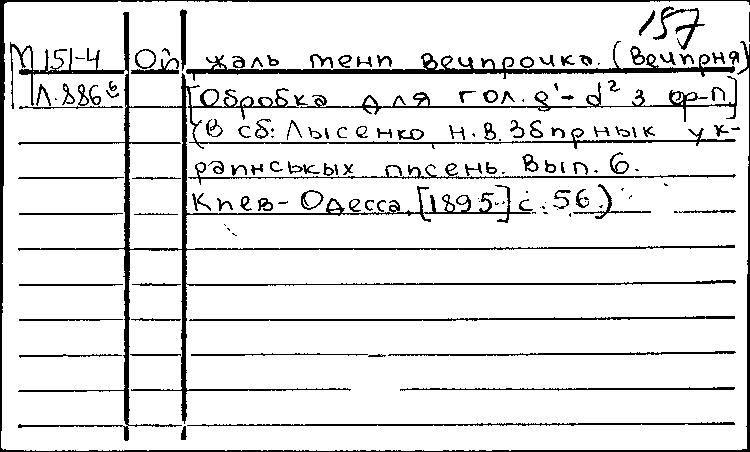 157
М 151-4 Ой жаль мени вечирочка. (Вечирня)
Л.886 б [Обробка для гол. g¹-d² з ф-п.]
(В сб: Лысенко, Н.В. Збирнык ук-
раинськых писень. Вып. 6.
Киев-Одесса, [1895] с. 56)